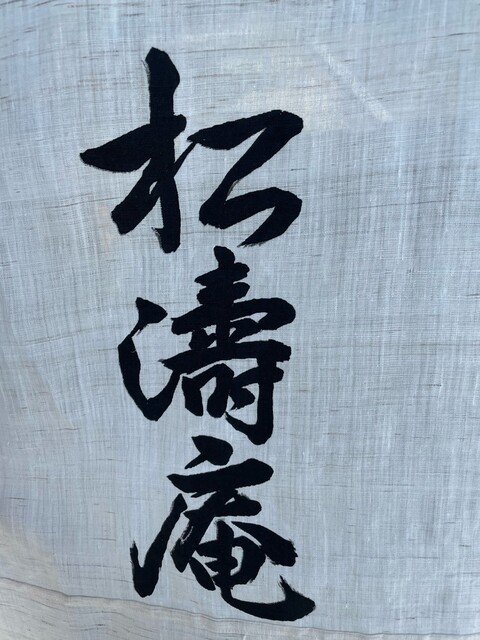 松濤庵